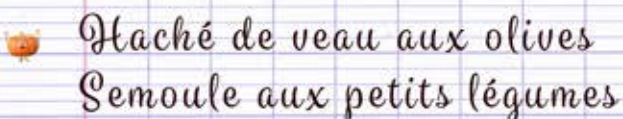 Haché de veau aux olives
Semoule aux petits légumes